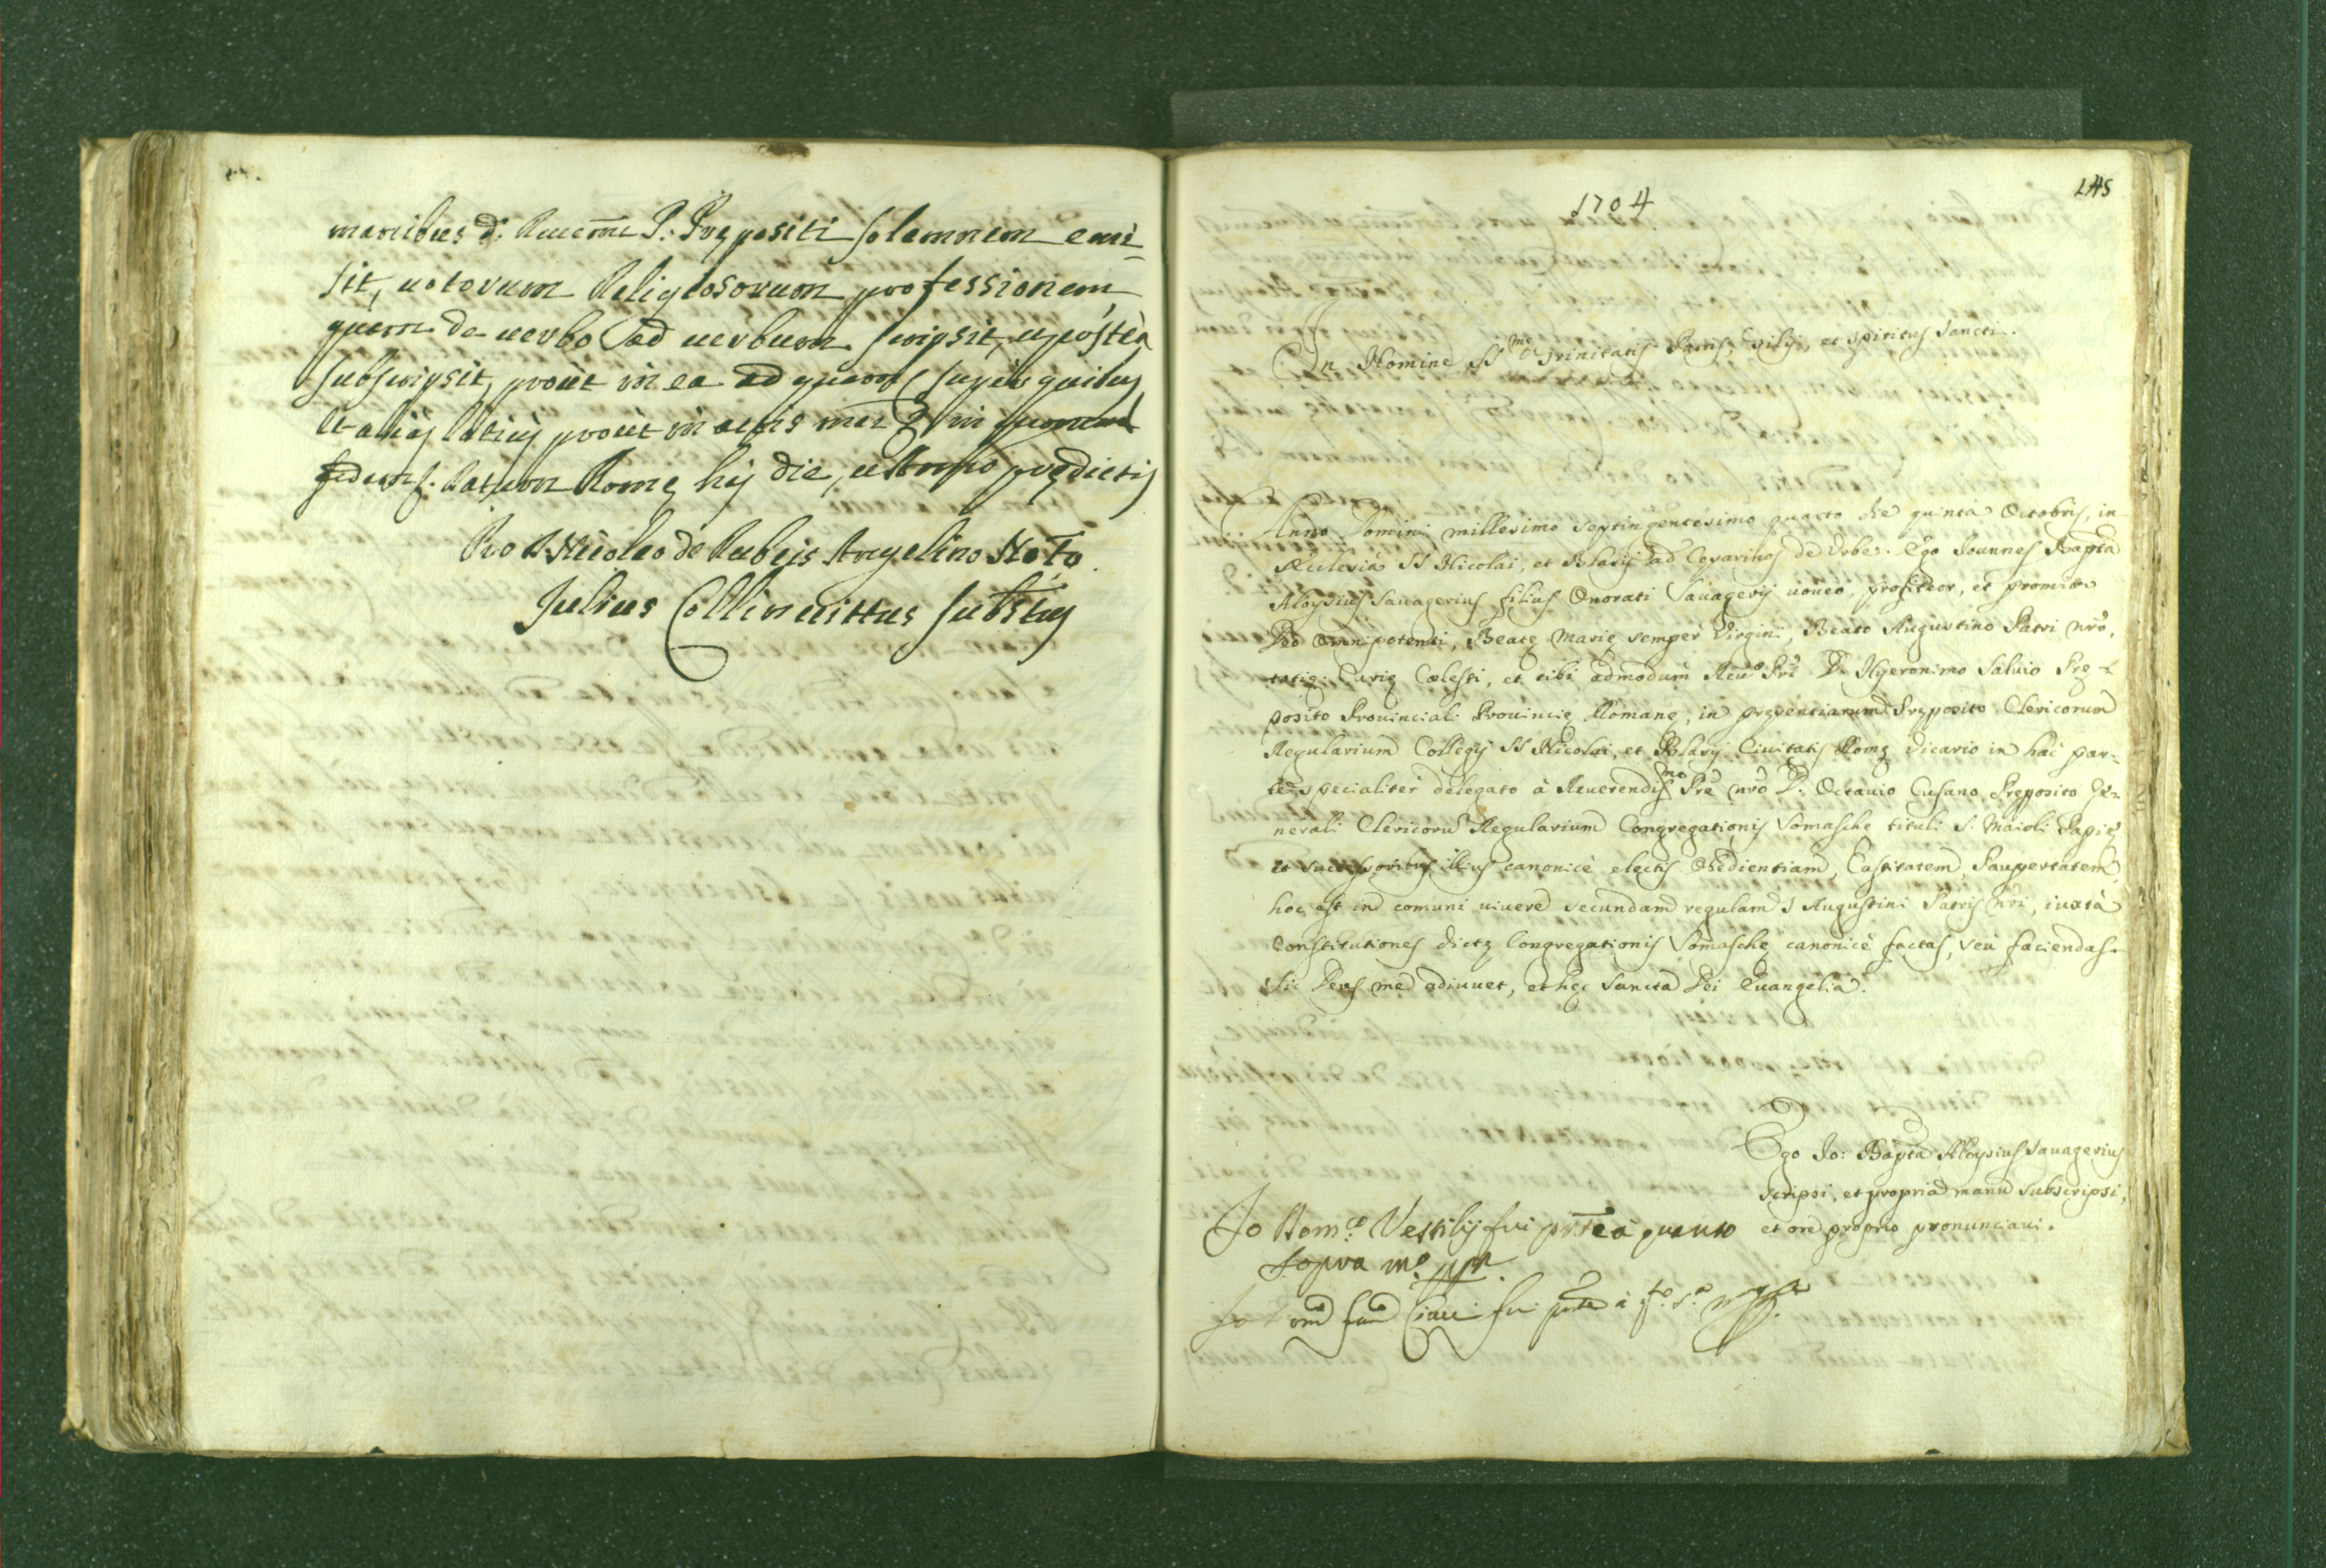 manibus d: Reuerm̃i P. Prępositi solemnem emi-
sit, uotorum Religiosorum professionem
quam de uerbo ad uerbum scripsit, et postea
subscripsit, prout in ea ad quam super quibus
et alias latius prout in actis mei
Datum Romę hij die, et Anno prędictis
Pro D. Nicolao de Rubeis Angelino Noto
Julius Collinuittus Substus
1704
145
In Nomine SSmę Trinitatis Patris, Filij, et Spiritus Sancti.
Anno Domini millesimo septingentesimo quarto die quinta Octobris, in
Ecclesia SS Nicolai, et Blasij ad Cęsarinos de Vrbe. Ego Ioannes Bapta
Aloysius Sauagerius filius Onorati Sauagerij uoueo, profiteor, et promitto
Deo Omnipotenti, Beatę Marię semper Virgini, Beato Augustino Patri nrõ,
totiq; Curię Cœlesti, et tibi admodum Reudo Pri D. Hyeronimo Saluio Prę-
posito Prouinciali Prouincię Romanę, in pręsentiarum Pręposito Clericorum
Regularium Collegij SS Nicolai, et Blasij Ciuitatis Romę Vicario in hac par-
te specialiter delegato à Reuerendissmo Prẽ nrõ D. Octauio Cusano Pręposito Ge-
nerali Clericorũ Regularium Congregationis Somaschę tituli S. Maioli Papię
et successoribus illius canonicè electis Obedientiam, Castitatem, Paupertatem,
hoc est in comuni uiuere secundam regulam S Augustini Patris nrĩ, iuxtà
Constitutiones dictę Congregationis Somaschę canonicè factas, seu faciendas.
Sic Deus me adiuuet, et hęc Sancta Dei Euangelia.
Ego Io: Bapta Aloysius Sauagerius
scripsi, et propria manu subscripsi,
et ore proprio pronunciaui.
Io Domco Vestilij fui pñte à quanto
sopra mo ppa
Io fui pñte à qto s.a